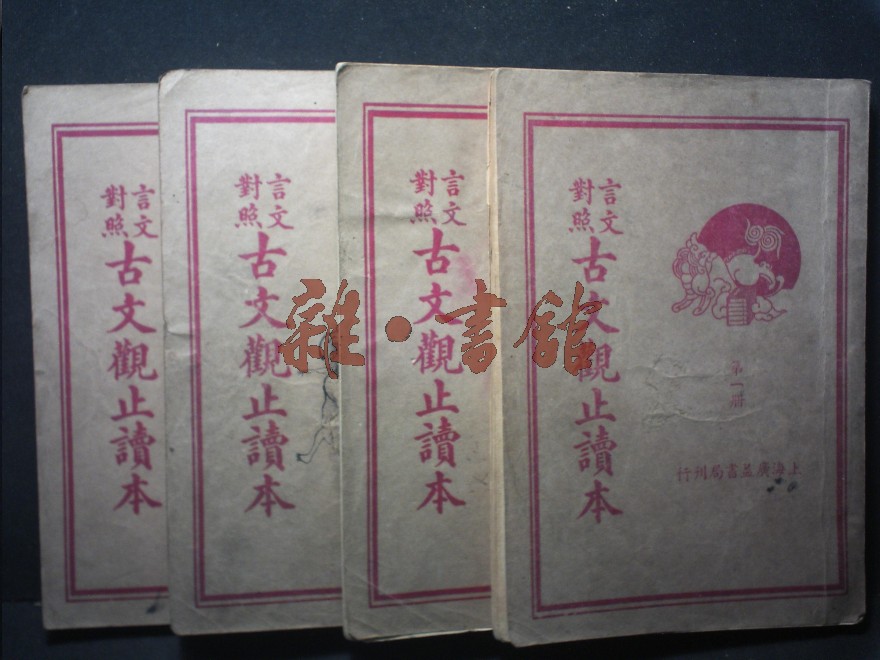 言文
對照
古文觀止讀本
言文
對照
古文觀止讀本
言文
對照
古文觀止讀本
言文
對照
古文觀止讀本
第一册
上海廣益書局刊行
雜·書館